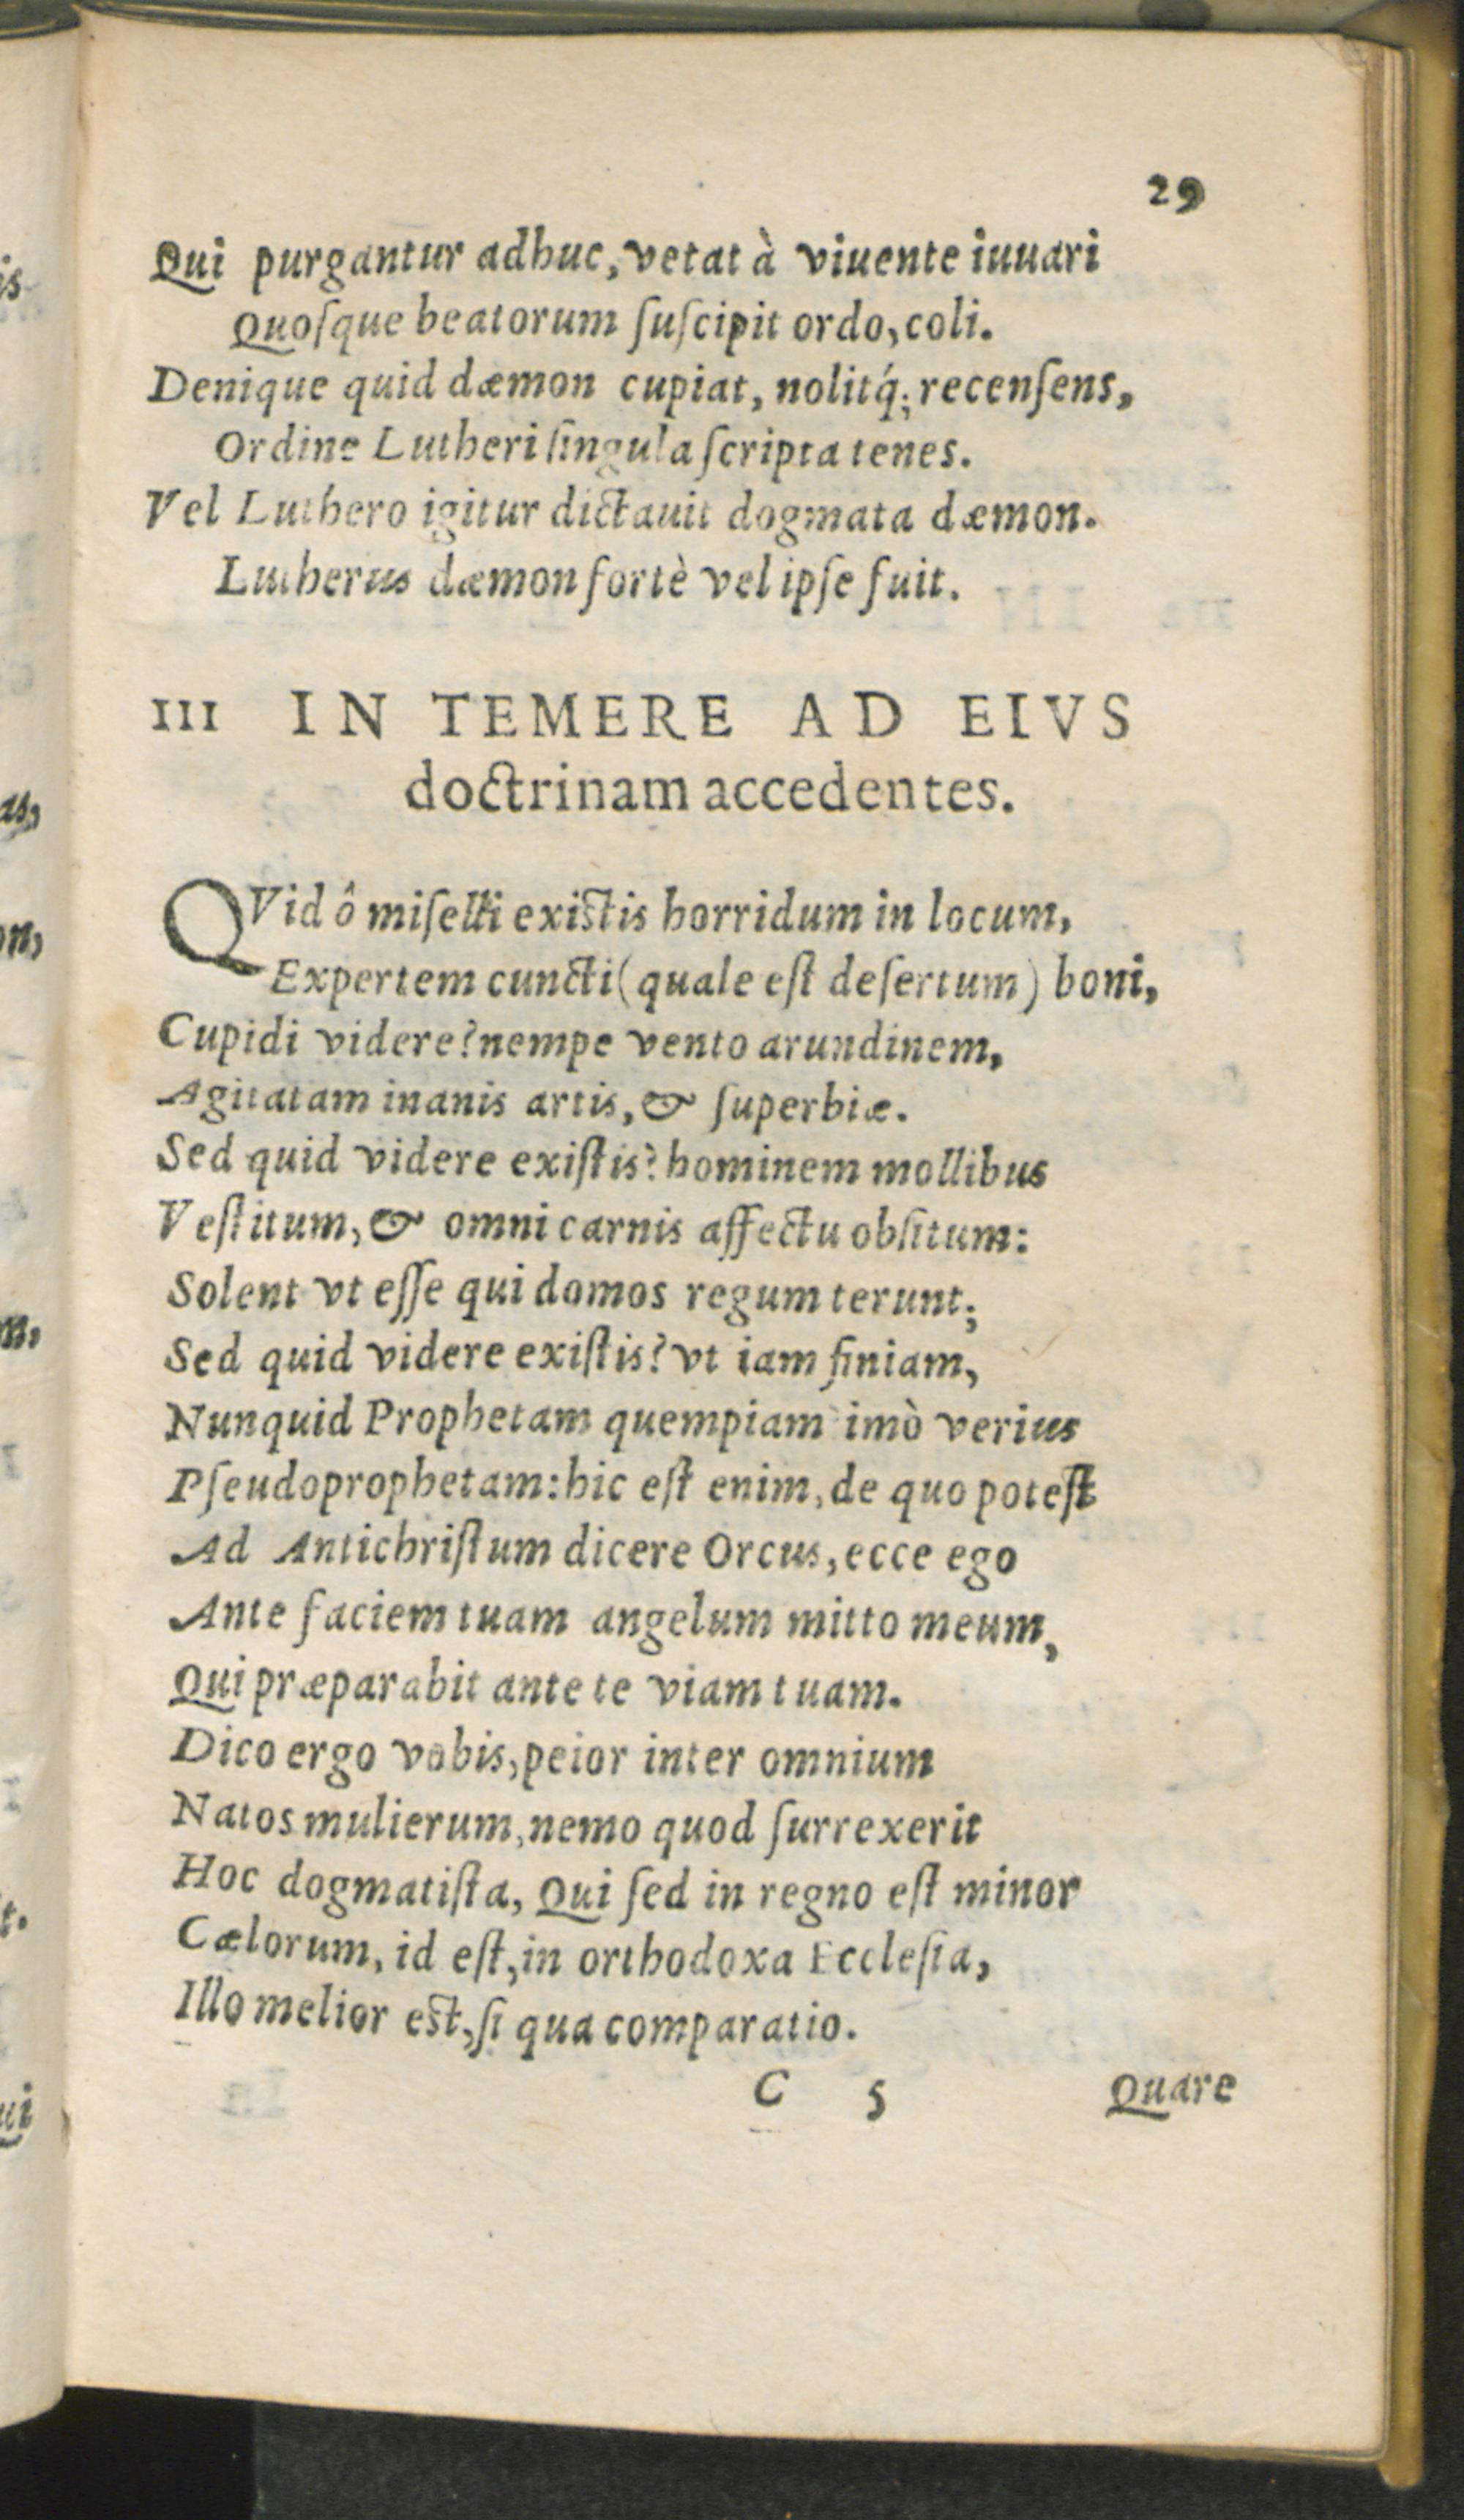 29
Qui purgantur adhuc, vetat à viuente iuuari
Quoſque beatorum ſuſcipit ordo, coli.
Denique quid dæmon cupiat, nolitq́; recenſens,
Ordine Lutheri ſingula ſcripta tenes.
Vel Luthero igitur dictauit dogmata dæmon.
Lutherus dæmon fortè vel ipſe fuit.
III IN TEMERE AD EIVS
doctrinam accedentes.
QVid ô miſelli existis horridum in locum,
Expertem cuncti (quale eſt deſertum) boni,
Cupidi videre? nempe vento arundinem,
Agitatam inanis artis, & ſuperbiæ.
Sed quid videre exiſtis? hominem mollibus
Veſtitum, & omni carnis affectu obſitum:
Solent vt eſſe qui domos regum terunt;
Sed quid videre exiſtis? vt iam finiam,
Nunquid Prophetam quempiam imò verius
Pſeudoprophetam: hic eſt enim, de quo poteſt
Ad Antichriſtum dicere Orcus, ecce ego
Ante faciem tuam angelum mitto meum,
Qui præparabit ante te viam tuam.
Dico ergo vobis, peior inter omnium
Natos mulierum, nemo quod ſurrexerit
Hoc dogmatiſta, Qui ſed in regno eſt minor
Cælorum, id eſt, in orthodoxa Eccleſia,
Illo melior est, ſi qua comparatio.
C 5 Quare